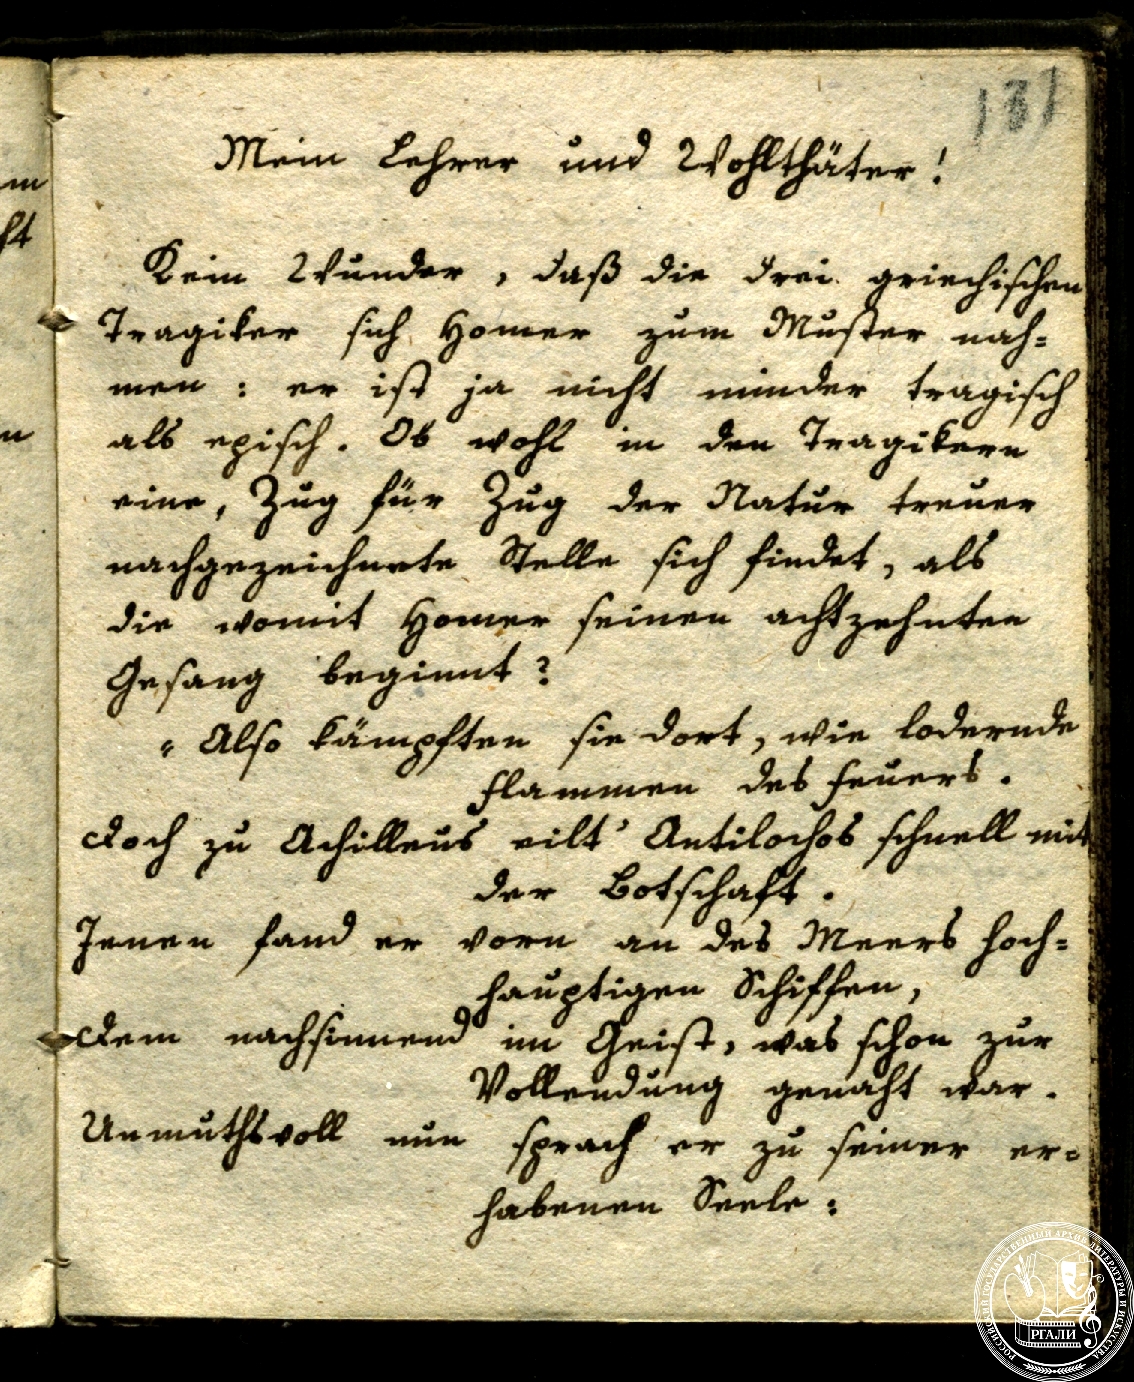 131
Mein Lehrer und Wohlthäter!
Kein Wunder, daß die drei griechischen
Tragiker sich Homer zum Muster nah=
men: er ist ja nicht minder tragisch
als episch. Ob wohl in den Tragikern
eine, Zug für Zug der Natur treuer
nachgezeichnete Stelle sich findet, als
die womit Homer seinen achtzehnten
Gesang beginnt?
"Also kämpften sie dort, wie lodernde
Flammen des Feuers.
Doch zu Achilleus eilt' Antilochos schnell mit
der Botschaft.
Jenen fand er vorn an des Meers hoch=
hauptigen Schiffen,
Dem nachsinnend im Geist, was schon zur
Vollendung genaht war.
Unmuthsvoll nun sprach er zu seiner er=
habenen Seele:
РОССИЙСКИЙ ГОСУДАРСТВЕННЫЙ АРХИВ ЛИТЕРАТУРЫ И ИСКУССТВА
РГАЛИ